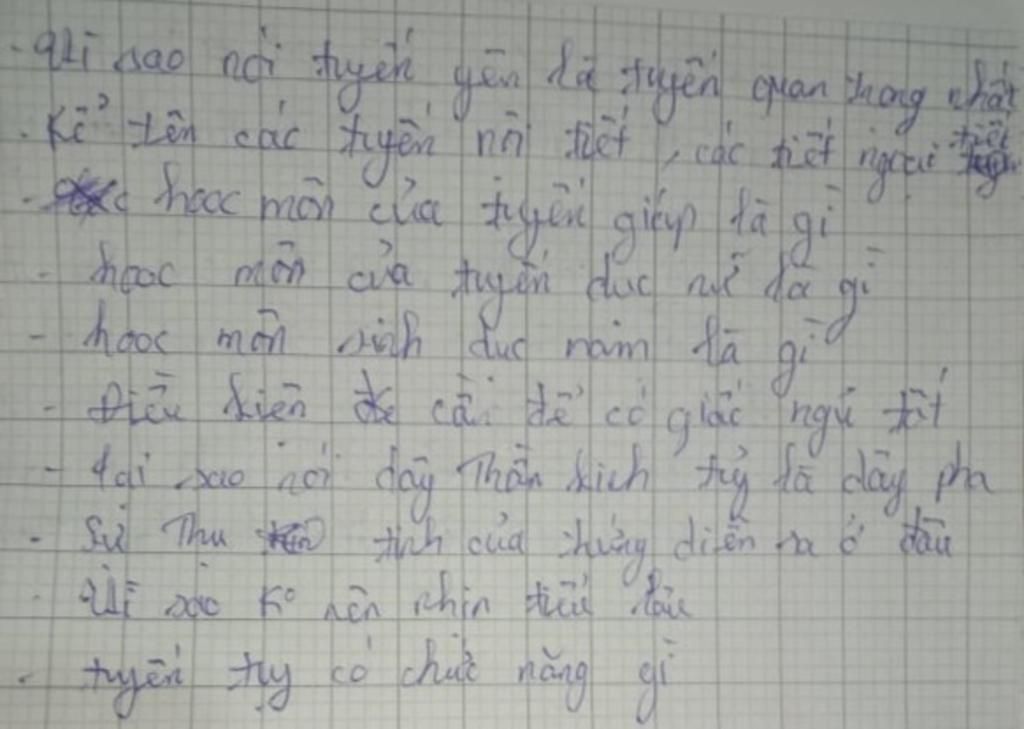 - Vì sao nói tuyến yên là tuyến quan trọng nhất
- Kể tên các tuyến nội tiết, các tiết ngoại tiết
- hooc môn của tuyến giáp là gì
- hooc môn của tuyến dục nữ là gì
- hooc môn sinh dục nam là gì
- Điều kiện cần để có giấc ngủ tốt
- tại sao nói dây Thần kinh tủy là dây pha
- Sự Thụ tinh của trứng diễn ra ở đâu
- Vì sao Ko nên nhịn tiểu lâu
- tuyến tụy có chức năng gì